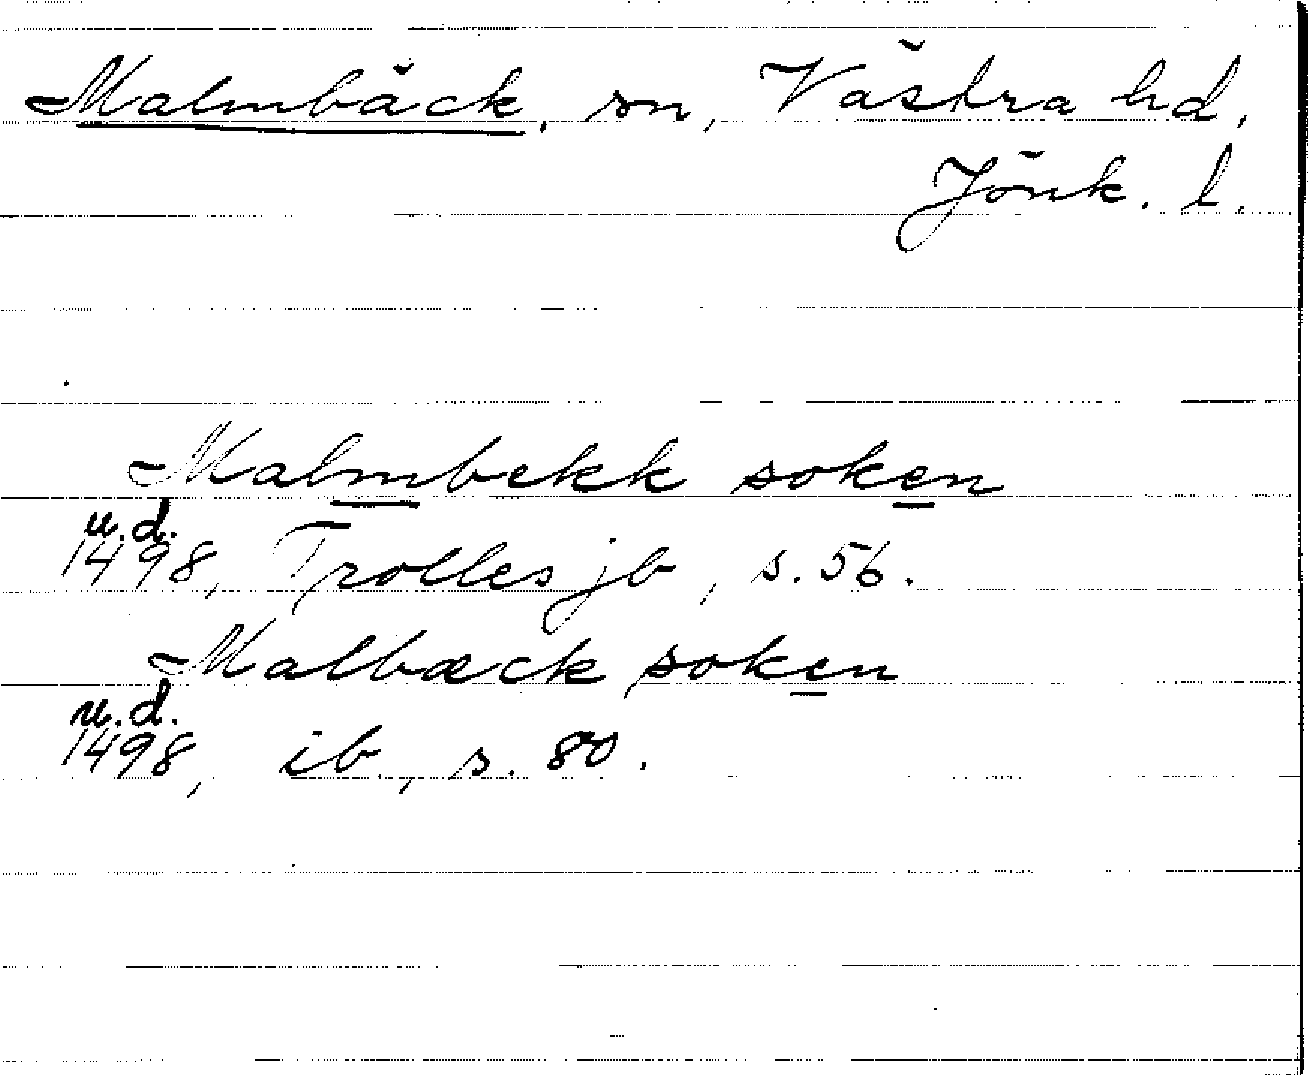 Malmbäck, sn, Västra hd,
Jönk. l.
Malmbekk soken
u.d.
1498, Trolles jb, s. 56.
Malbæck soken
u.d.
1498, ib., s. 80.